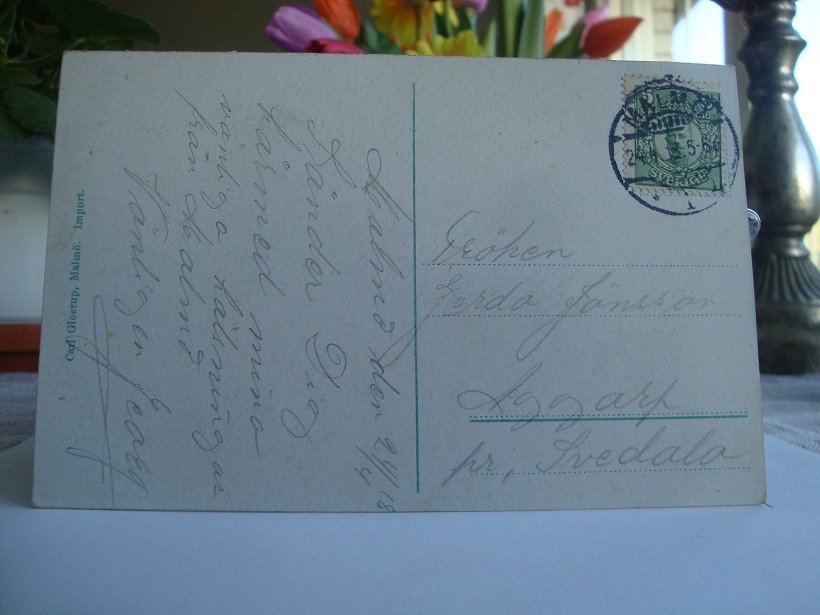 Malmö den 24/4 18
Sänder Dig
härmed mina
vänliga hälsningar
från Malmö
Vänligen Georg
Carl Gleerup, Malmö. Import.
MALMÖ
5-6
1
SVERIGE
Fröken
Gerda Jönsson
Aggarp
pr, Svedala